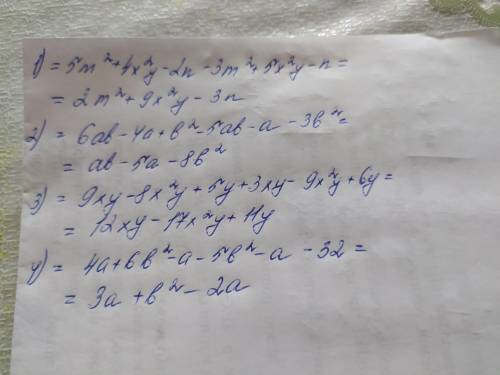 1) = 5m²+4x²y-2n-3m²+5x²y-n=
= 2m²+9x²y-3n
2) = 6ab-4a+b²-5ab-a-3b²=
= ab-5a-8b²
3) = 9xy-8x²y+5y+3xy-9x²y+6y=
= 12xy-17x²y+11y
4) = 4a+6b²-a-5b²-a-32=
= 3a+b²-2a